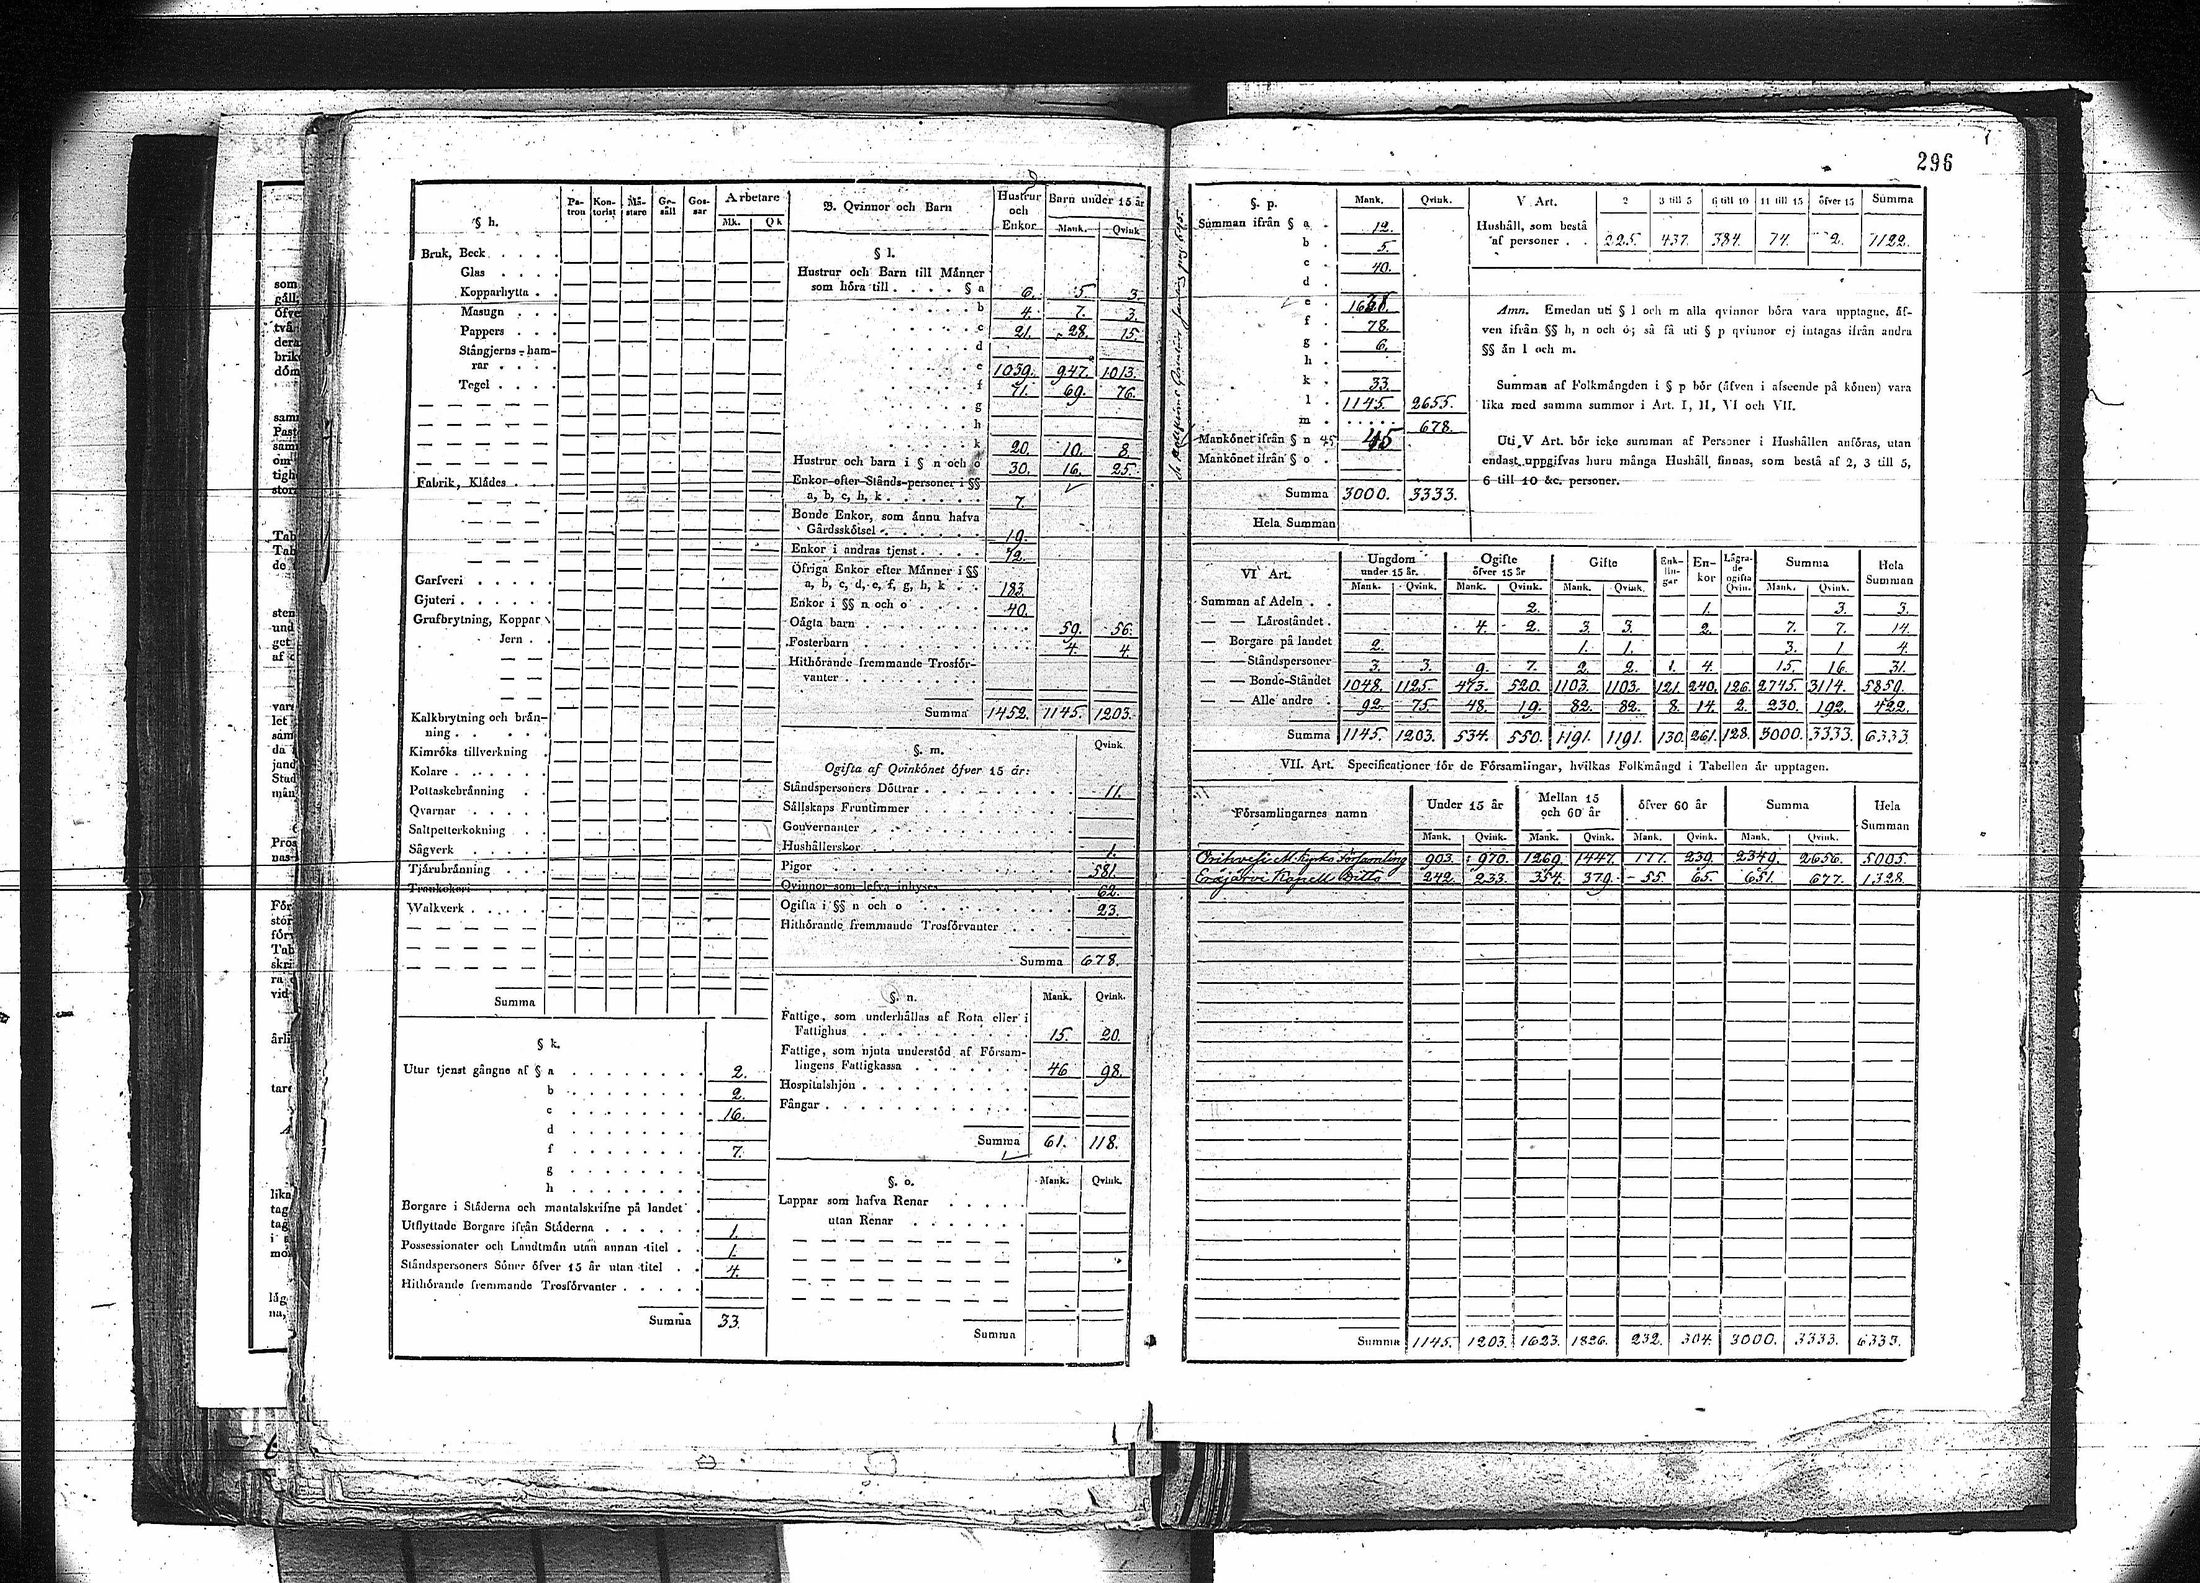 296
§ h.
Pa-tron Kon-torist Må-stare Ge-säll Gos-sar Arbetare
Mk. Qk
Bruk, Beck
Glas
Kopparhytta
Masugn
Pappers
Stångjerns-ham-
rar
Tegel
Fabrik, Klådes
Garfveri
Gjuteri
Grufbrytning, Koppar
Jern
Kalkbrytning och brån-
ning
Kimröks tillverkning
Kolare
Pottaskebrånning
Qvarnar
Saltpetterkokning
Sågverk
Tjårubrånning
Trankokeri
Walkverk
Summa
§ k.
Utur tjenst gångne af § a 2.
b 2.
c 16.
d
f 7.
g
h
Borgare i Ståderna och mantalskrifne på landet
Utflyttade Borgare ifrån Ståderna 1.
Possessionater och Landtmån utan annan titel 1.
Ståndspersoners Söner öfver 15 år utan titel 4.
Hithörande fremmande Trosförvanter
Summa 33.
B. Qvinnor och Barn Hustrur och Enkor Barn under 15 år
Mank. Qvink
§ l.
Hustrur och Barn till Männer
som höra till § a 6. 5. 3.
b 4. 7. 3.
c 21. 28. 15.
d
e 1039. 947. 1013.
f 71. 69. 76.
g
h
k 20. 10. 8.
Hustrur och barn i § n och o 30. 16. 25.
Enkor efter Stånds-personer i §§
a, b, c, h, k 7.
Bonde Enkor, som ånnu hafva
Gårdsskötsel 19.
Enkor i andras tjenst 12.
Öfriga Enkor efter Männer i §§
a, b, c, d, e, f, g, h, k 183.
Enkor i §§ n och o 40.
Oägta barn 59. 56.
Fosterbarn 4. 4.
Hithörande fremmande Trosför-
vanter
Summa 1452. 1145. 1203.
§. m. Qvink
Ogifta af Qvinkönet öfver 15 år:
Ståndspersoners Döttrar 11.
Sällskaps Fruntimmer
Gouvernanter
Hushållerskor 1.
Pigor 581.
Qvinnor som lefva inhyses 62.
Ogifta i §§ n och o 23.
Hithörande fremmande Trosförvanter
Summa 678.
§. n. Mank. Qvink.
Fattige, som underhållas af Rota eller i
Fattighus 15. 20.
Fattige, som njuta understöd af Församlingens Fattigkassa 46 98.
Hospitalshjon
Fångar
Summa 61. 118.
§. o. Mank. Qvink.
Lappar som hafva Renar
utan Renar
Summa
§. p. Mank. Qvink.
Summan ifrån § a 12.
b 5.
c 40.
d
e
f 78.
g 6.
h
k 33.
l 1145. 2655.
m 678.
Mankönet ifrån § n 45 45
Mankönet ifrån § o
Summa 3000. 3333.
Hela Summan
V Art. 2 3 till 5 6 till 10 11 till 15 öfver 15 Summa
Hushåll, som bestå
af personer 225. 437. 384. 74. 2. 1122.
Anm. Emedan uti § l och m alla qvinnor böra vara upptagne, äf-
ven ifrån §§ h, n och o; så få uti § p qvinnor ej intagas ifrån andra
§§ än l och m.
Summan af Folkmängden i § p bör (äfven i afseende på könen) vara
lika med samma summor i Art. I, II, VI och VII.
Uti V Art. bör icke summan af Personer i Hushållen anföras, utan
endast uppgifvas huru många Hushåll finnas, som bestå af 2, 3 till 5,
6 till 10 &c. personer.
VI Art. Ungdom under 15 år. Ogifte öfver 15 år Gifte Enk-lin-gar En-kor Lägra-de ogifta Qvin. Summa Hela Summan
Mank. Qvink. Mank. Qvink. Mank. Qvink. Mank. Qvink.
Summan af Adeln 2. 1. 3. 3.
— — Läroståndet 4. 2. 3. 3. 2. 7. 7. 14.
— Borgare på landet 2. 1. 1. 3. 1. 4.
— — Ståndspersoner 3. 3. 9. 7. 2. 2. 1. 4. 15. 16. 31.
— — Bonde-Ståndet 1048. 1125. 473. 520. 1103. 1103. 121. 240. 126. 2745. 3114. 5859.
— — Alle andre 92. 75. 48. 19. 82. 82. 8. 14. 2. 230. 192. 422.
Summa 1145. 1203. 534. 550. 1191. 1191. 130. 261. 128. 3000. 3333. 6333.
VII. Art. Specificationer för de Församlingar, hvilkas Folkmängd i Tabellen är upptagen.
Församlingarnes namn Under 15 år Mellan 15 och 60 år öfver 60 år Summa Hela Summan
Mank. Qvink. Mank. Qvink. Mank. Qvink. Mank. Qvink.
Orihvesi M. Kyrko Församling 903. 970. 1269. 1447. 177. 239. 2349. 2656. 5005.
Eräjärvi Kapell Ditto 242. 233. 354. 379. 55. 65. 651. 677. 1328.
Summa 1145. 1203. 1623. 1826. 232. 304 3000. 3333. 6333.